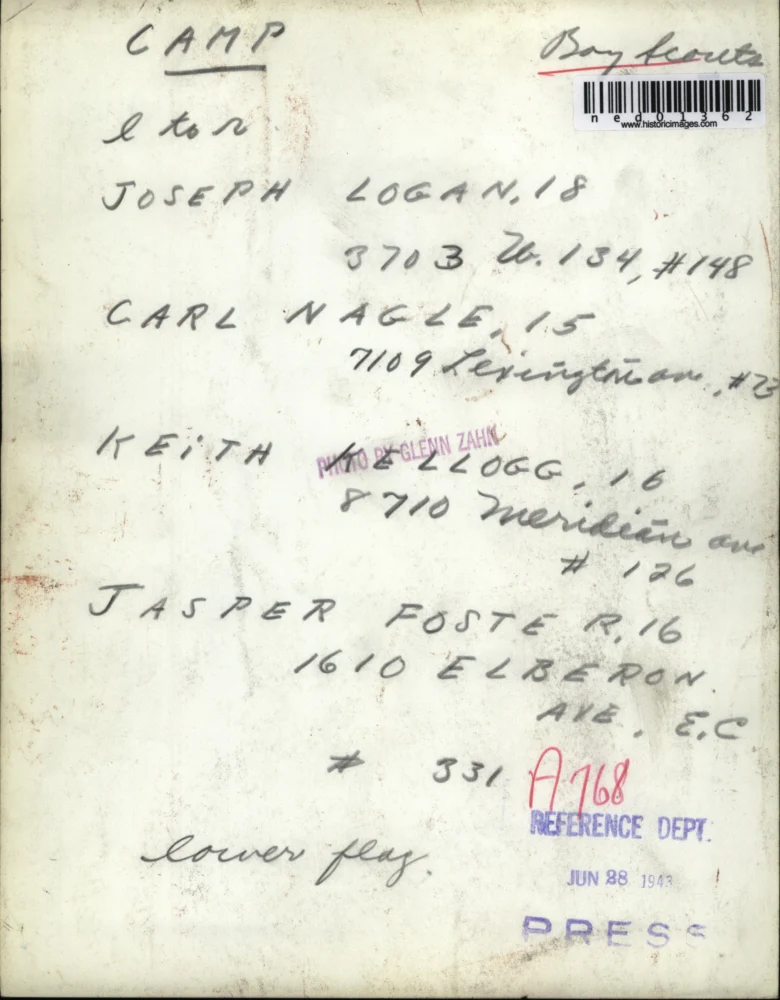 CAMP
Boy Scouts
ned01362
www.historicimages.com
l to r
JOSEPH LOGAN, 18
3703 W. 134, #148
CARL NAGLE, 15
7109 Lexington ave, #73
PHOTO BY GLENN ZAHN
KEiTH KELLOGG, 16
8710 Meridian ave
# 126
JASPER FOSTER, 16
1610 ELBERON
AVE, E.C
# 331
A768
REFERENCE DEPT.
lower flag.
JUN 28 1943
PRESS